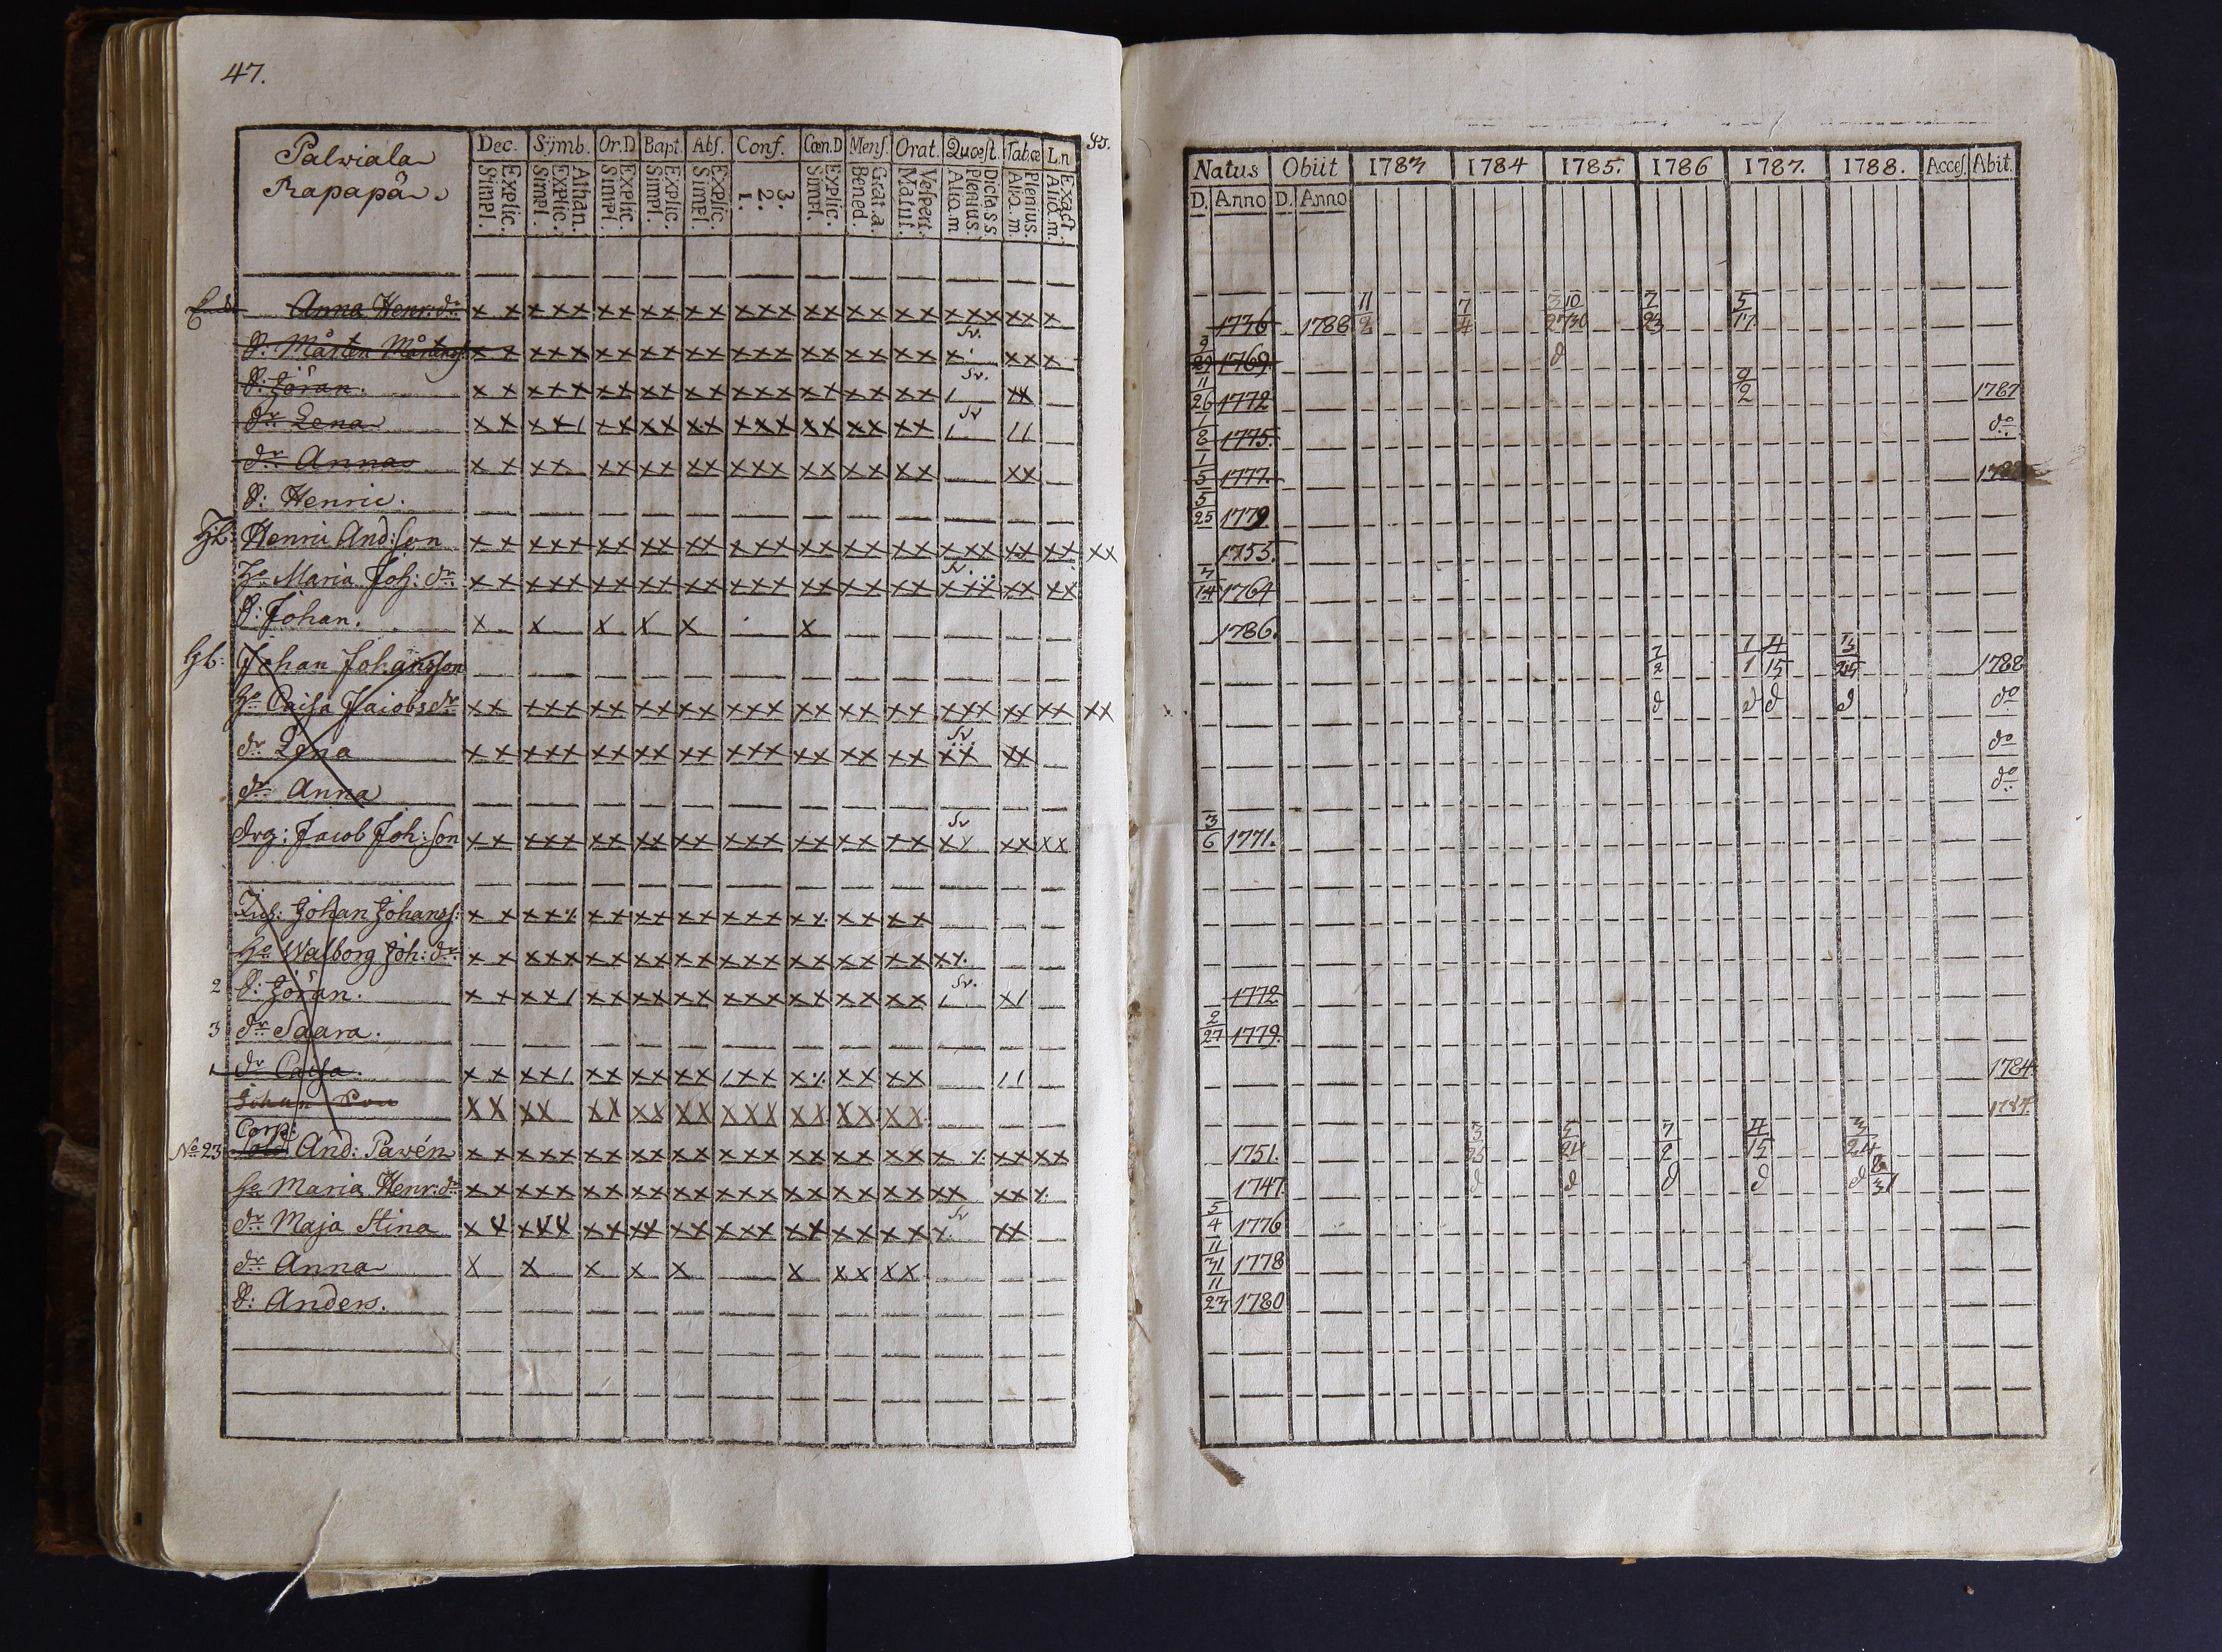 47.
45.
Palwiala
Rapapå
Dec. Symb. Or.D Bapt. Abs. Conf. Cœn.D Mens. Orat. Quæst. Tabæ L.n
Simpl. Explic. Simpl. Explic. Athan. Simpl. Explic. Simpl. Explic. Simpl. Explic. 1. 2. 3. Simpl. Explic. Bened. Grat.a. Matut. Vespert. Aliq.m. Plenius. Dicta s.s. Aliq.m. Plenius. Aliq.m. Exact.
Anna Henr:dr x x x x x x x x x x x x x x x x x x x x x x x x x x
Sv.
S: Mårten Mårtenss. x x x x x x x x x x x x x x x x x x x x x x x x
Sv.
S: Jöran. x x x x x x x x x x x x x x x x x x x x / x x
Sv
dr Lena x x x x / x x x x x x x x x x x x x x x / / /
dr Anna x x x x x x x x x x x x x x x x x x x x x
S: Henric.
Henric And:son x x x x x x x x x x x x x x x x x x x x x x x x x x x x x
Sv.
Ho Maria Joh:dr x x x x x x x x x x x x x x x x x x x x x x x x x x x
S: Johan. x x x x x x
Johan Johansson
Ho Caisa Jacobsdr x x x x x x x x x x x x x x x x x x x x x x x x x x x x x
Sv
dr Lena x x x x x x x x x x x x x x x x x x x x x x x x
dr Anna
Sv
drg: Jacob Joh:son x x x x x x x x x x x x x x x x x x x x x x x x x x
Inh: Johan Johanss: x x x x ٪ x x x x x x x x x x ٪ x x x x
Ho Walborg Joh:dr x x x x x x x x x x x x x x x x x x x x x ٪
Sv.
2 S: Jöran. x x x x / x x x x x x x x x x x x x x x / x /
3 dr Saara.
1 dr Caisa. x x x x / x x x x x x / x x x ٪ x x x x / /
Johan x x x x x x x x x x x x x x x x x x x
Corp:
No 23 Sold And: Pawén x x x x x x x x x x x x x x x x x x x x x ٪ x x x x
Ho Maria Henr:dr x x x x x x x x x x x x x x x x x x x x x x x x ٪
Sv
dr Maja Stina x x x x x x x x x x x x x x x x x x x x ٪ x x
dr Anna x x x x x x x x x x
S: Anders.
Natus Obiit 1783 1784 1785. 1786 1787. 1788. Acces. Abit.
D. Anno D. Anno
1736 1788 11/2 7/4 3/27 10/30 7/23 5/17
9/29 1769. d
11/26 1772 9/2 1787
1/8 1775. do
1/5 1777.
5/25 1779
1755.
7/14 1764
1786.
7/2 1/1 4/15 3/25 1788
d d d d do
do
do
3/6 1771.
1772
2/27 1779.
1784.
1784.
1751. 3/25 5/24 7/2 4/15 3/24
1747. d d d d d 8/31
5/4 1776
11/31 1778
11/23 1780